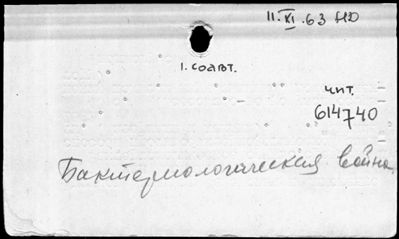 11.XI.63 НЮ
1. соавт.
чит.
614740
Бактериологическая война